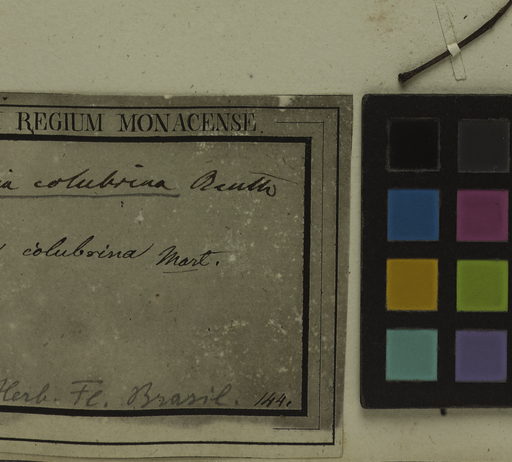 REGIUM MONACENSE
ia colubrina Benth
colubrina Mart.
Herb. Fl. Brasil. 144.